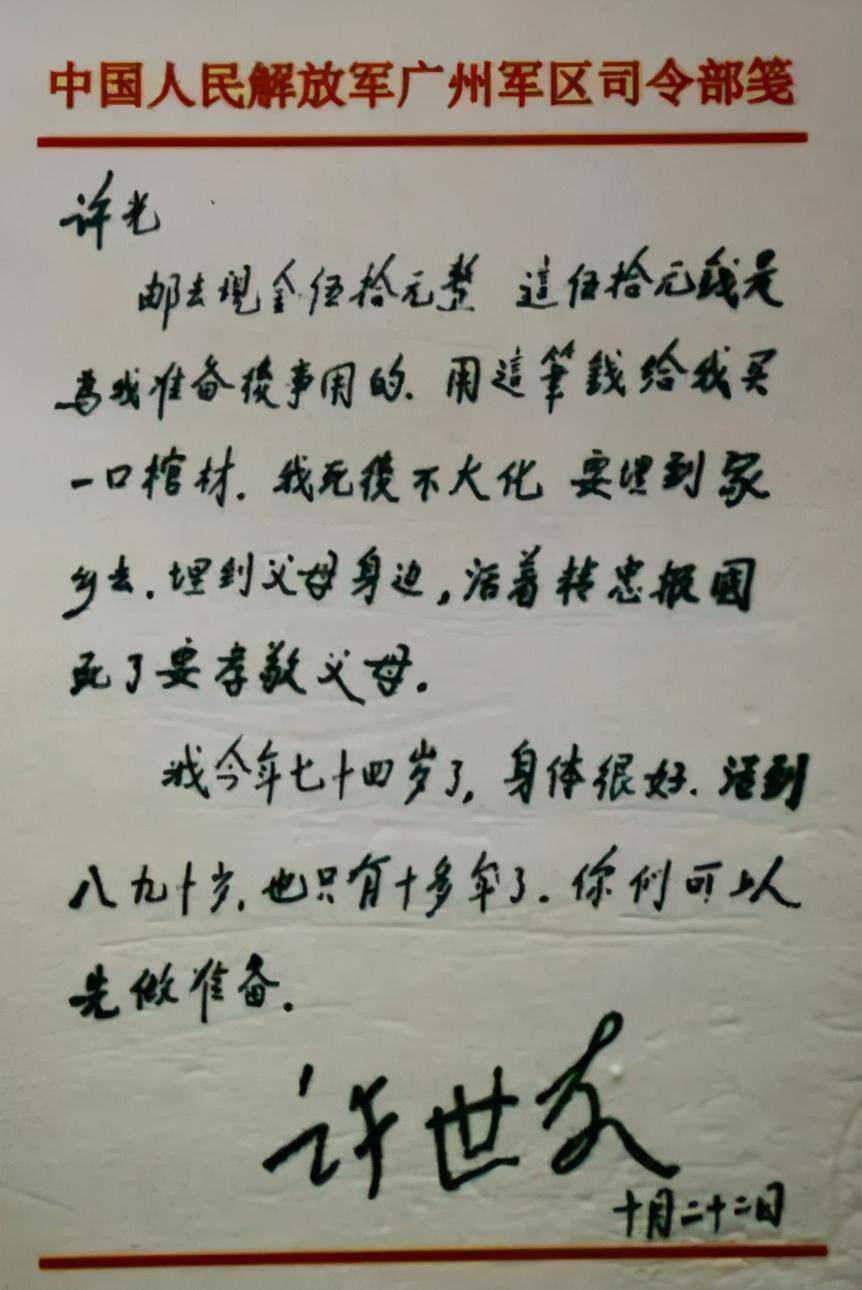 中国人民解放军广州军区司令部笺
许光
邮去现金伍拾元整 這伍拾元錢是
為我准备後事用的.用這筆錢给我买
一口棺材.我死後不大化 要埋到家
乡去.埋到父母身边,活着精忠报國
死了要孝敬父母.
我今年七十四岁了,身体很好.活到
八九十岁,也只有十多年了.你们可以
先做准备.
许世友
十月二十二日